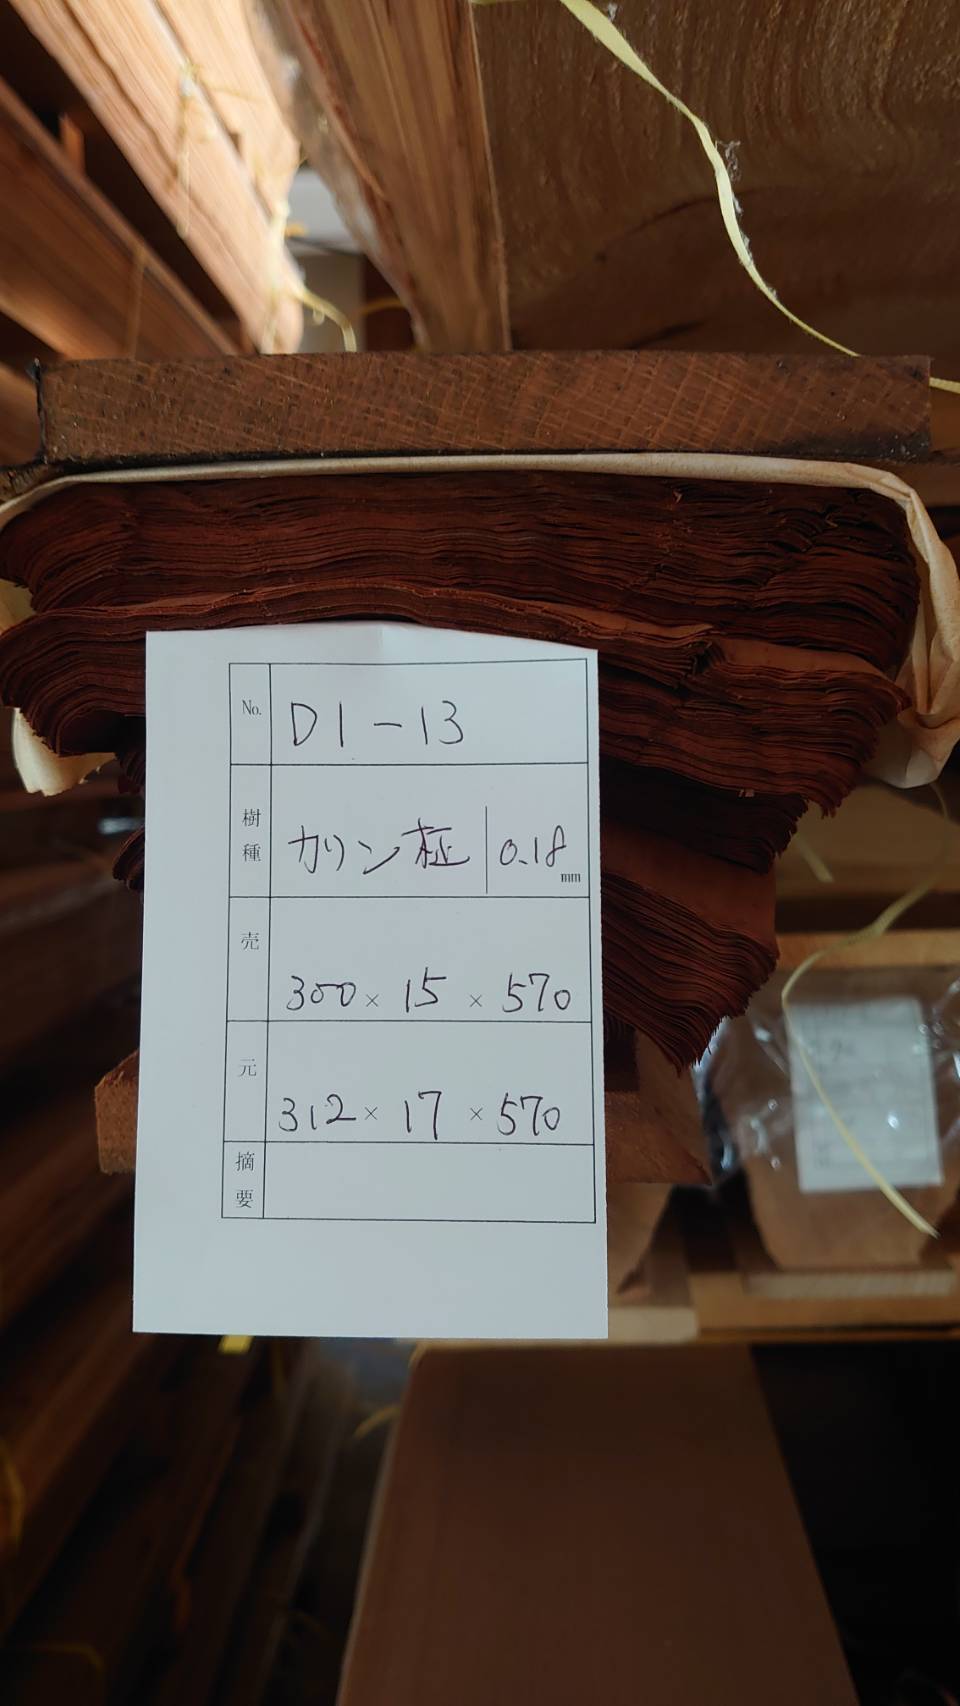 No. D1-13
樹種 カリン柾 0.18 mm
売 300 × 15 × 570
元 312 × 17 × 570
摘要